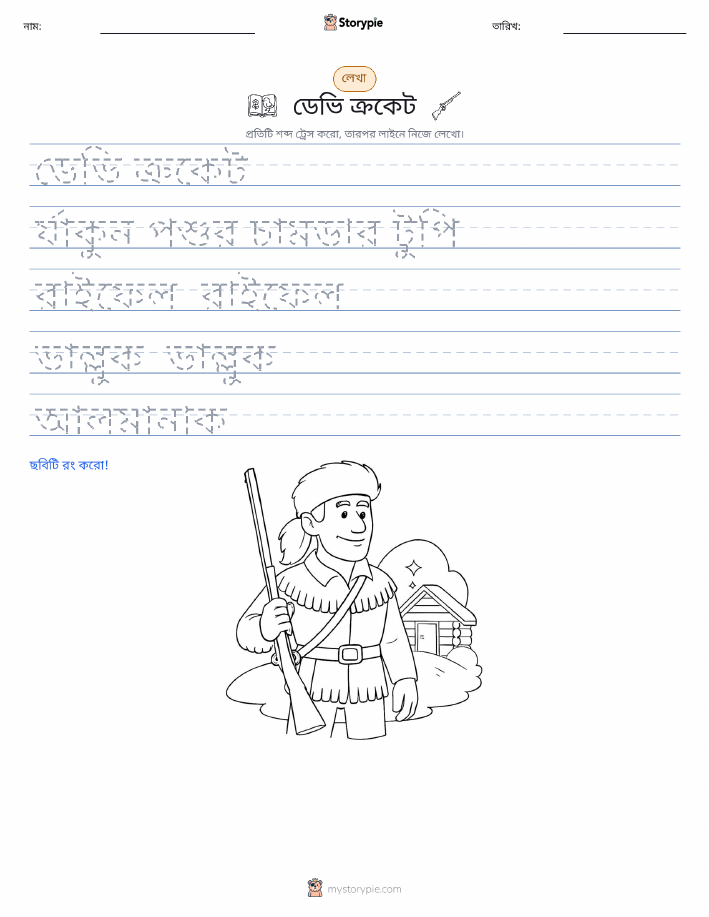 নাম:
Storypie
তারিখ:
লেখা
ডেভি ক্রকেট
প্রতিটি শব্দ ট্রেস করো, তারপর লাইনে নিজে লেখো।
ডেভি ক্রকেট
র্যাকুন পশুর চামড়ার টুপি
রাইফেল রাইফেল
ভাল্লুক ভাল্লুক
আলমানাক
ছবিটি রং করো!
mystorypie.com